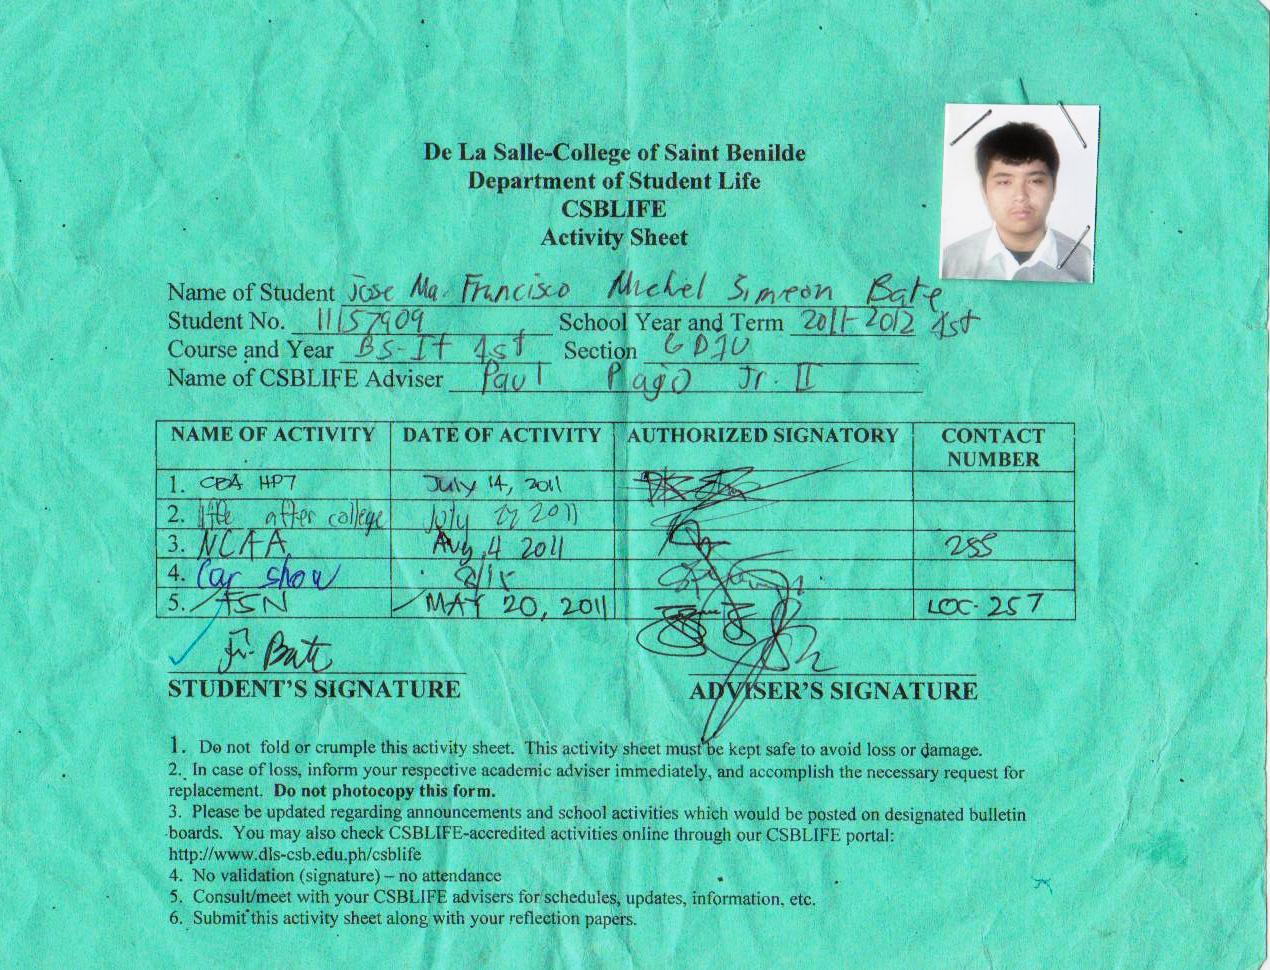 De La Salle-College of Saint Benilde
Department of Student Life
CSBLIFE
Activity Sheet
Name of Student Jose Ma. Francisco Michel Simeon Bate
Student No. 11157909 School Year and Term 2011-2012 1st
Course and Year BS-IT 1st Section GD1U
Name of CSBLIFE Adviser Paul Pago Jr. II
NAME OF ACTIVITY DATE OF ACTIVITY AUTHORIZED SIGNATORY CONTACT NUMBER
1. CBA HP7 July 14, 2011
2. life after college July 2011
3. NCAA Aug 4 2011 255
4. Car show
5. MAY 20, 2011 LOC. 257
Bate
STUDENT'S SIGNATURE ADVISER'S SIGNATURE
1. Do not fold or crumple this activity sheet. This activity sheet must be kept safe to avoid loss or damage.
2. In case of loss, inform your respective academic adviser immediately, and accomplish the necessary request for
replacement. Do not photocopy this form.
3. Please be updated regarding announcements and school activities which would be posted on designated bulletin
boards. You may also check CSBLIFE-accredited activities online through our CSBLIFE portal:
http://www.dls-csb.edu.ph/csblife
4. No validation (signature) – no attendance
5. Consult/meet with your CSBLIFE advisers for schedules, updates, information, etc.
6. Submit this activity sheet along with your reflection papers.